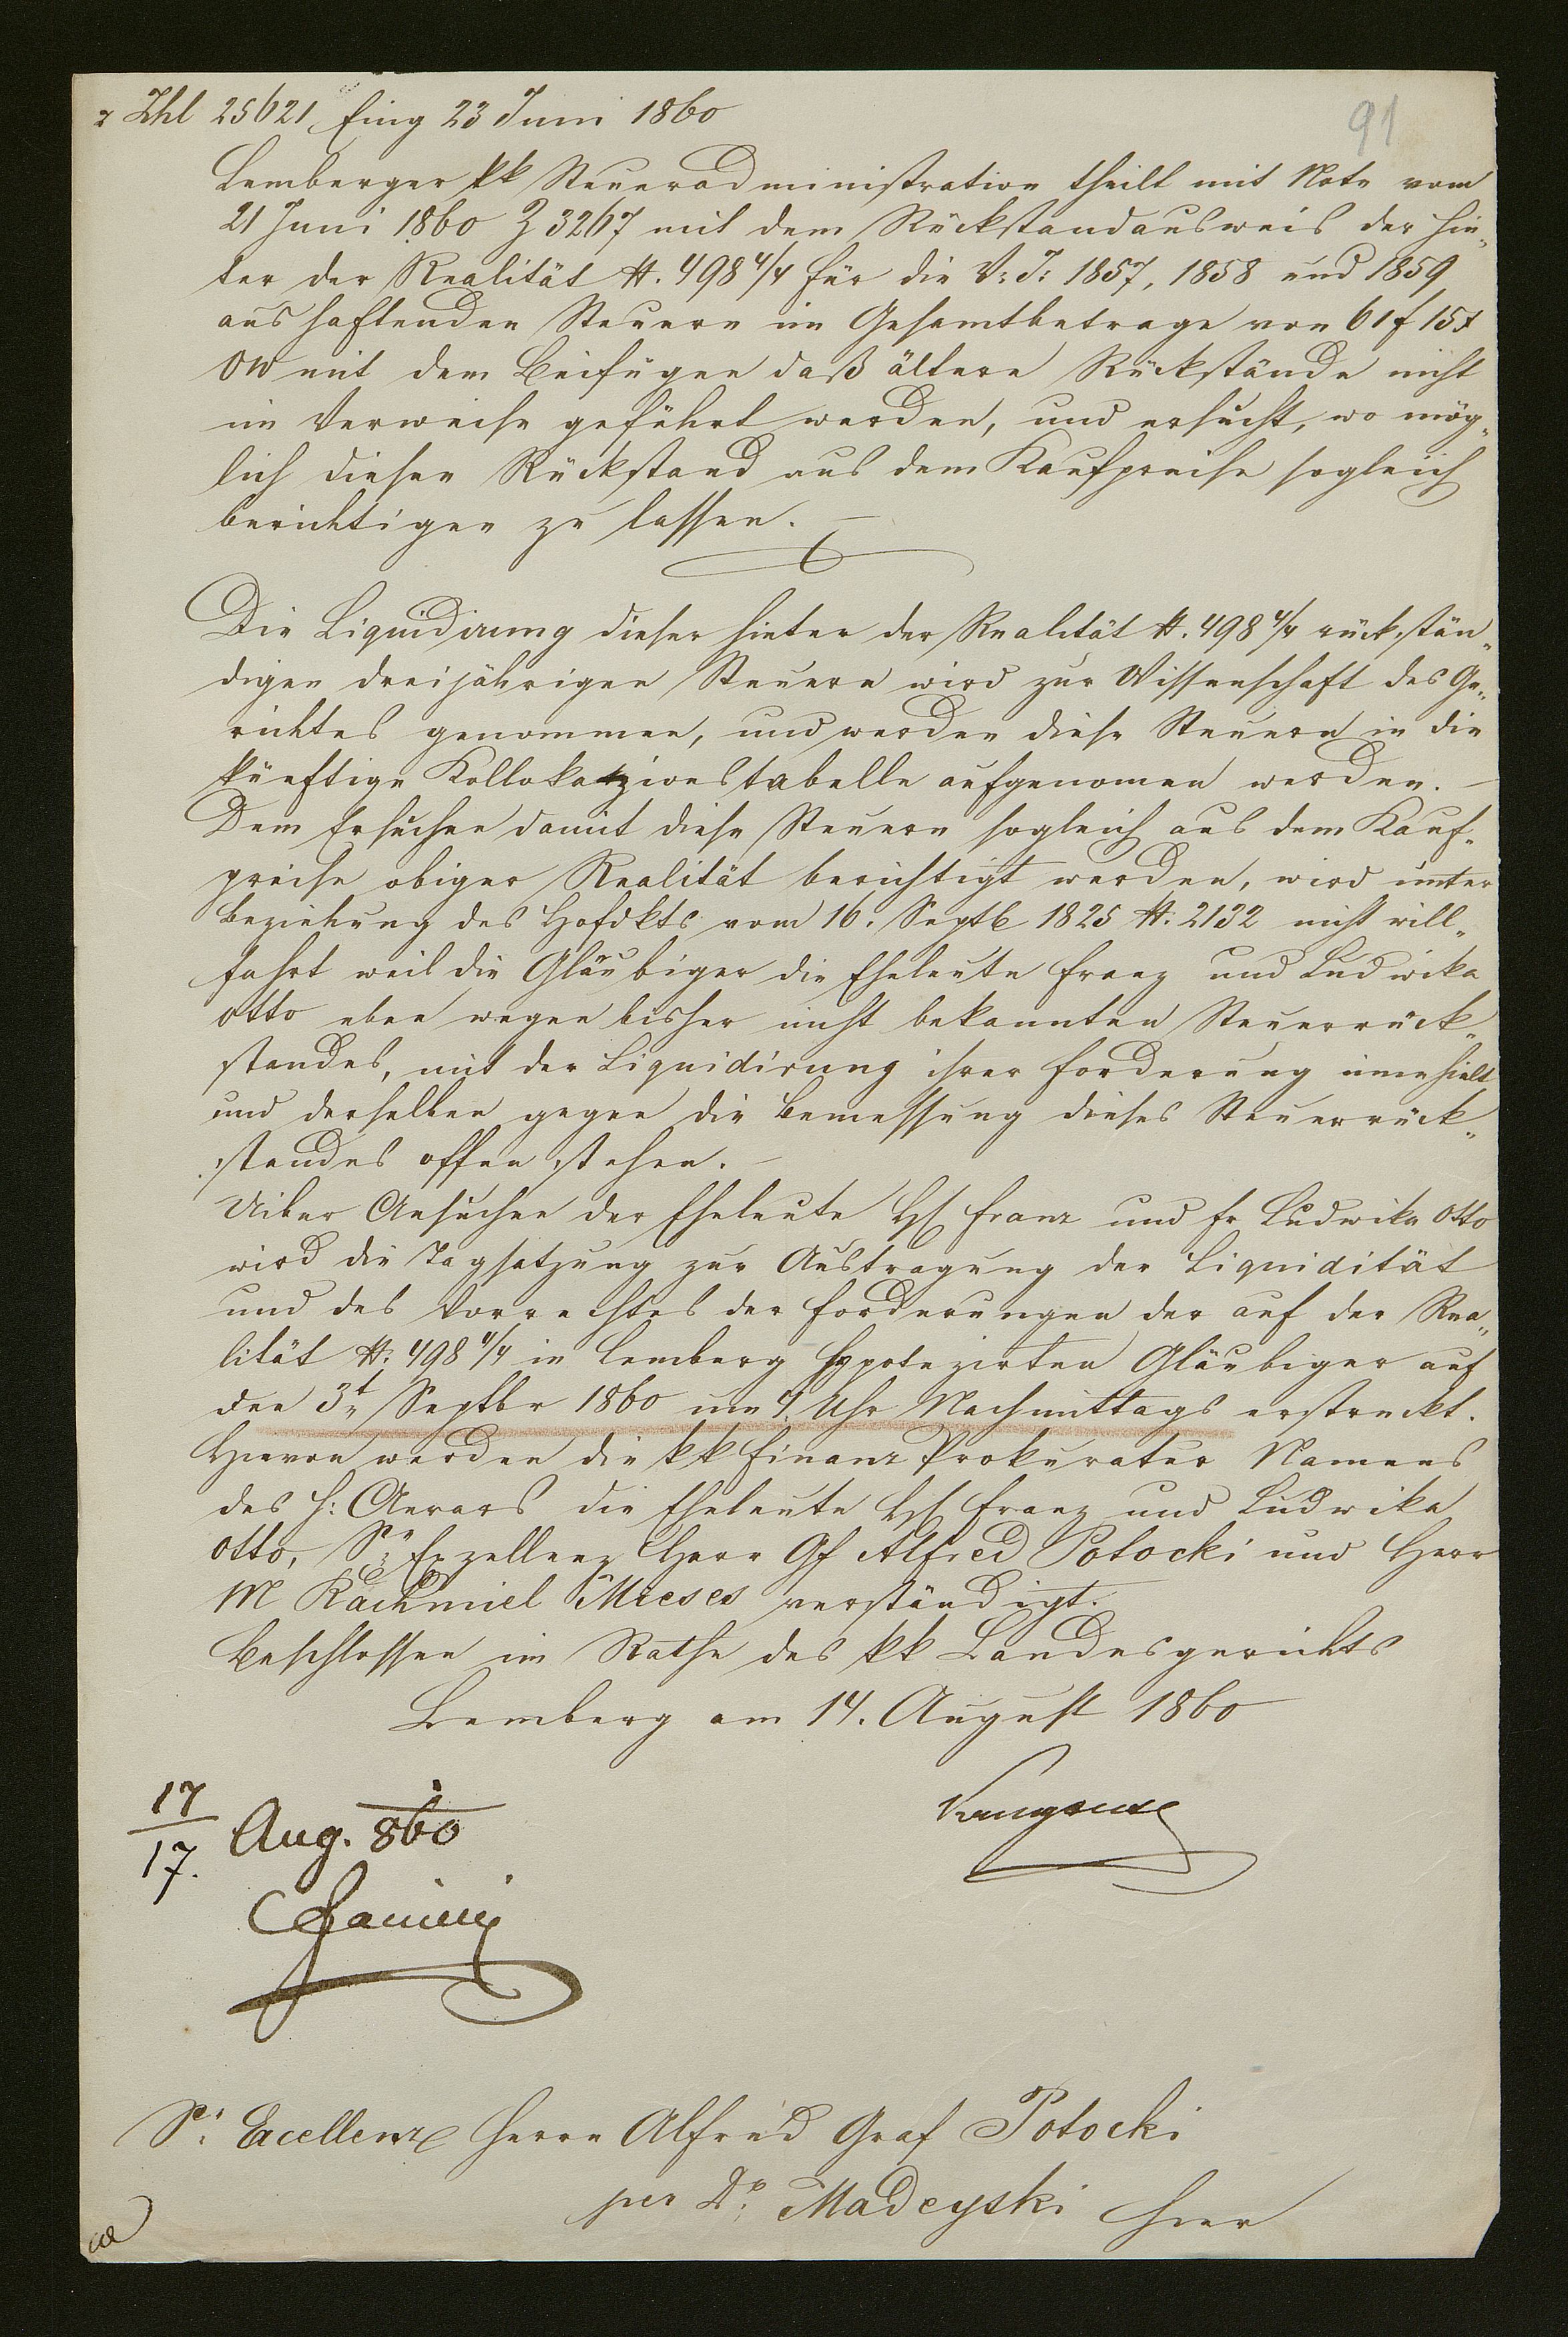 Zhl 25621 Eing 23 Juni 1860
91
Lemberger kk Steueradministration theilt mit Note vom
21 Juni 1860 Z 3267 mit dem Rückstandausweis der hin„
ter der Realität N. 498 4/4 für die V: J: 1857, 1858 und 1859
aushaftenden Steuern im Gesamtbetrage von 61 f 15 x
OW mit dem Beifügen daß ältere Rückstände nicht
im Verweise geführt werden, und ersucht, wo mög„
lich diesen Rückstand aus dem Kaufpreise sogleich
berichtigen zu lassen. —
Die Liquidirung dieser hinter der Realität N. 498 4/4 rückstän„
digen dreijährigen Steuern wird zur Wissenschaft des Ge„
richtes genommen, und werden diese Steuern in die
künftige Kollokazionstabelle aufgenomen werden. —
Dem Ersuchen damit diese Steuern sogleich aus dem Kauf„
preise obiger Realität berichtigt werden, wird unter
Beziehung des Hofdkts vom 16. Septb 1825 N. 2132 nicht will„
fahrt weil die Gläubiger die Eheleute Franz und Ludwika
Otto eben wegen bisher nicht bekannten Steuerrück„
standes, mit der Liquidirung ihrer Forderung innehielt
und derselben gegen die Bemessung dieses Steuerrück„
standes offen stehen. —
Uiber Ansuchen der Eheleute H Franz und Fr Ludwika Otto
wird die Tagsatzung zur Austragung der Liquidität
und des Vorrechtes der Forderungen der auf der Rea„
lität N. 498 4/4 in Lemberg hypotezirten Gläubiger auf
den 3t Septbr 1860 um 4 Uhr Nachmittags erstreckt.
Hievon werden die kk Finanz Prokuratur Namens
des h: Aerars die Eheleute H Franz und Ludwika
Otto, Se Exzellenz Herr Gf Alfred Potocki und Herr
M Rachmiel Mieses verständigt.
Beschlossen im Rathe des kk Landesgerichts
Lemberg am 14. August 1860
17
17. Aug. 860
Sr Excellenz Herrn Alfred Graf Potocki
per Dr. Madeyski hier